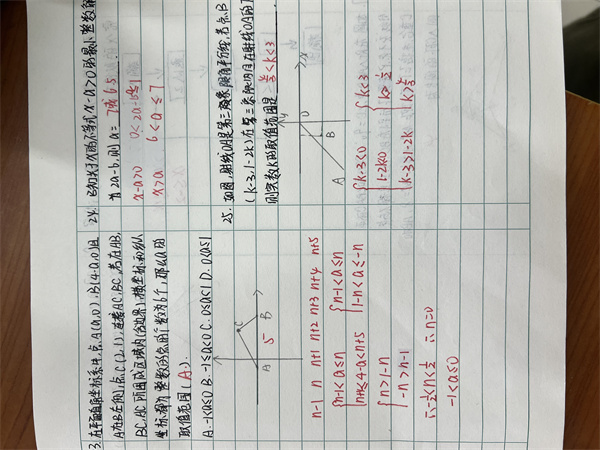 3. 在平面直角坐标系中,点A(a,0),B(4-a,0)且
A在B左侧,点C(2,1),连接AC,BC,若在AB,
BC,AC所围成区域内(含边界),横坐标和纵
坐标都为整数的点的个数为6个,那么a的
取值范围(A.)
A.-1<a≤0 B.-1≤a<0 C.0≤a<1 D.0<a≤1
C
A
B
5
n-1 n n+1 n+2 n+3 n+4 n+5
{n-1<a≤n {n-1<a≤n
n+4≤4-a<n+5 1-n<a≤-n
{n>1-n
-n>n-1
∴-½<n<½ ∴n=0
-1<a≤0
24. 已知关于x的不等式x-a>0的最小整数解
为2a-b,则a=
x-a>0 0<2a-b≤1
x>a 6<a≤7
25. 如图,射线OA是第三象限角平分线,若点B
(k-3,1-2k)在第三象限内且在射线OA的下
则实数k的取值范围是
y
O
x
B
A
{k-3<0 {k<3
1-2k<0 k>½
k-3>1-2k